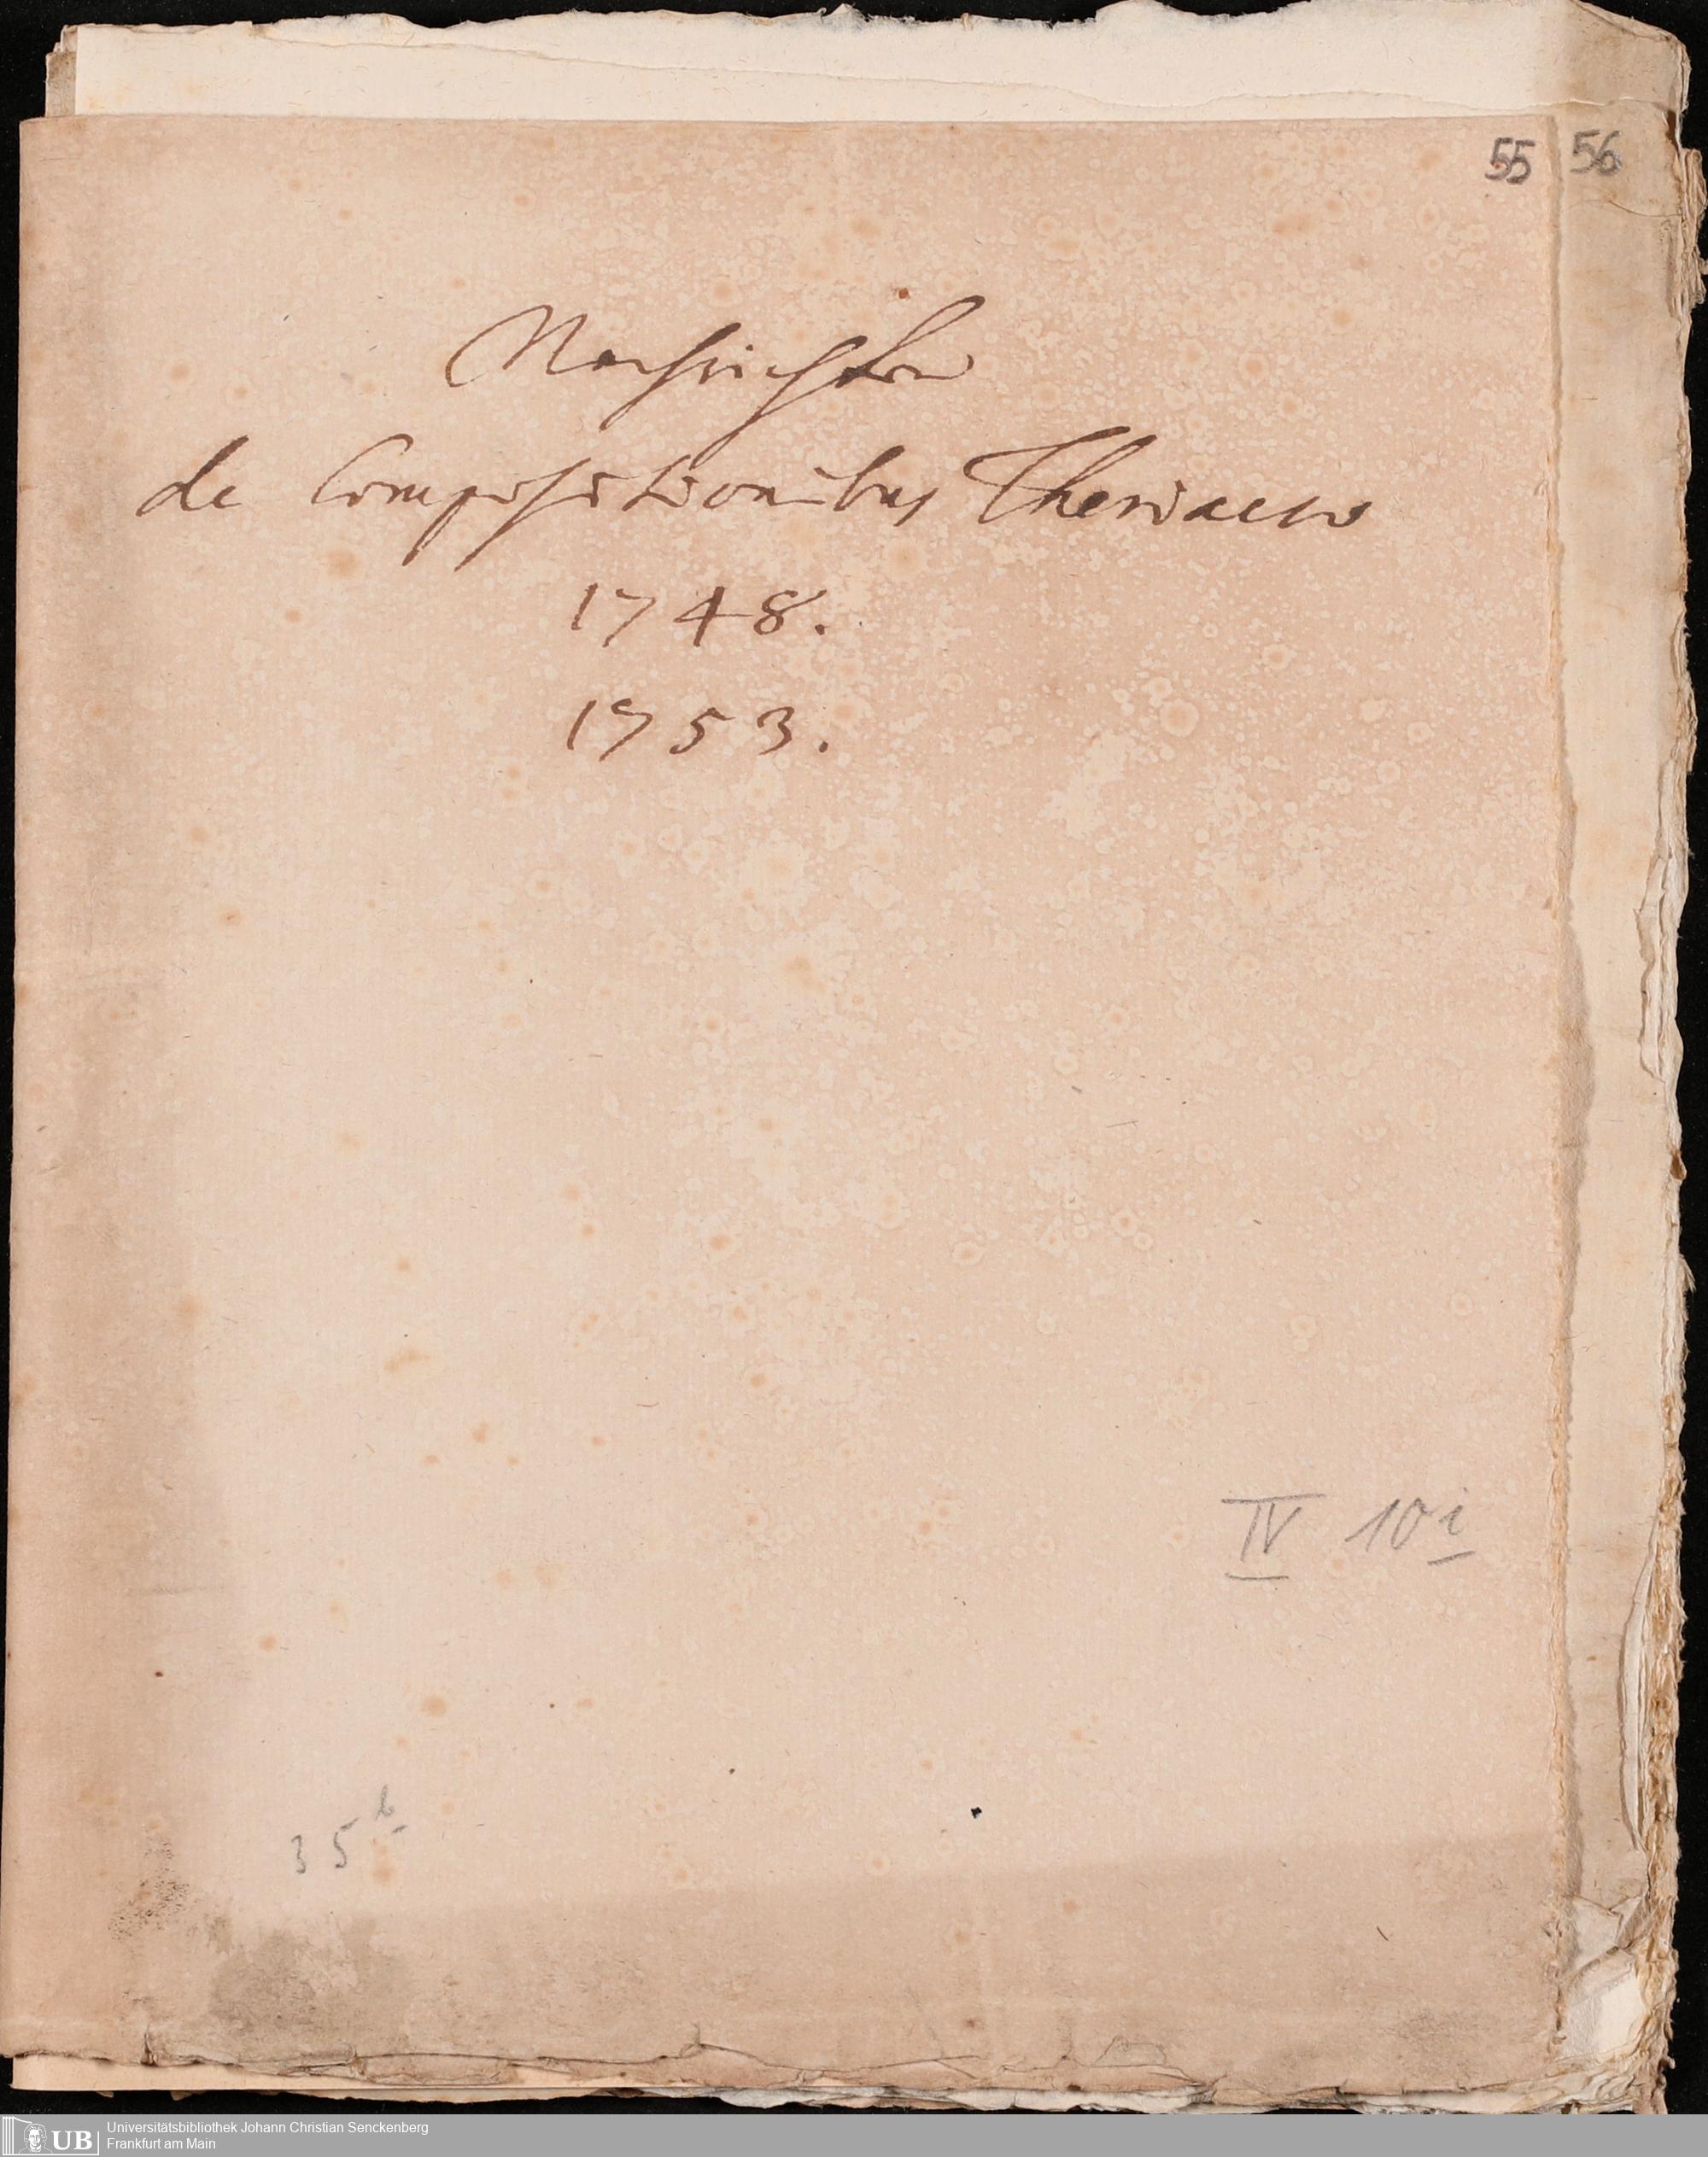 55 56
Nachrichten
de Compositionibus Theriacae
1748.
1753.
IV 10 i
35 b
UB
Universitätsbibliothek Johann Christian Senckenberg
Frankfurt am Main